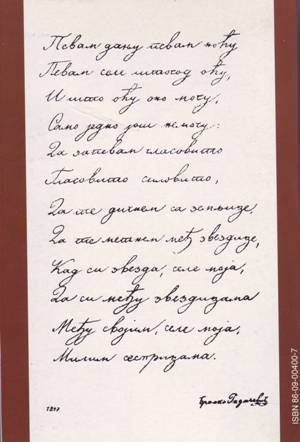 Певам дању певам ноћу
Певам селе штогод оћу,
И што оћу оно могу,
Само једно још не могу:
Да запевам гласовито
Гласовито силовито,
Да те дигнем са земљице
Да те метнем међ звездице,
Кад си звезда, селе моја,
Да си међу звездицама
Међу својим, селе моја,
Милим сестрицама.
Бранко Радичевић
ISBN 86-09-00400-7